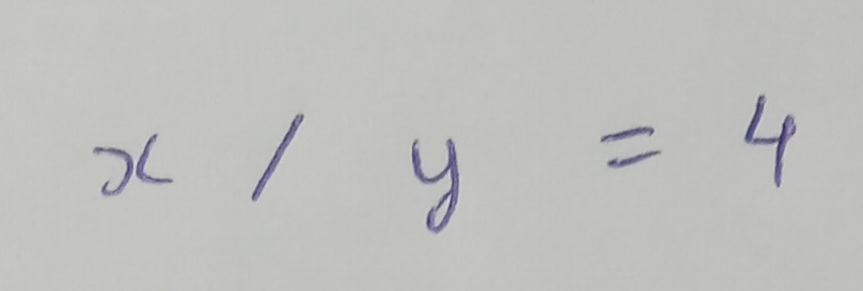 x / y = 4